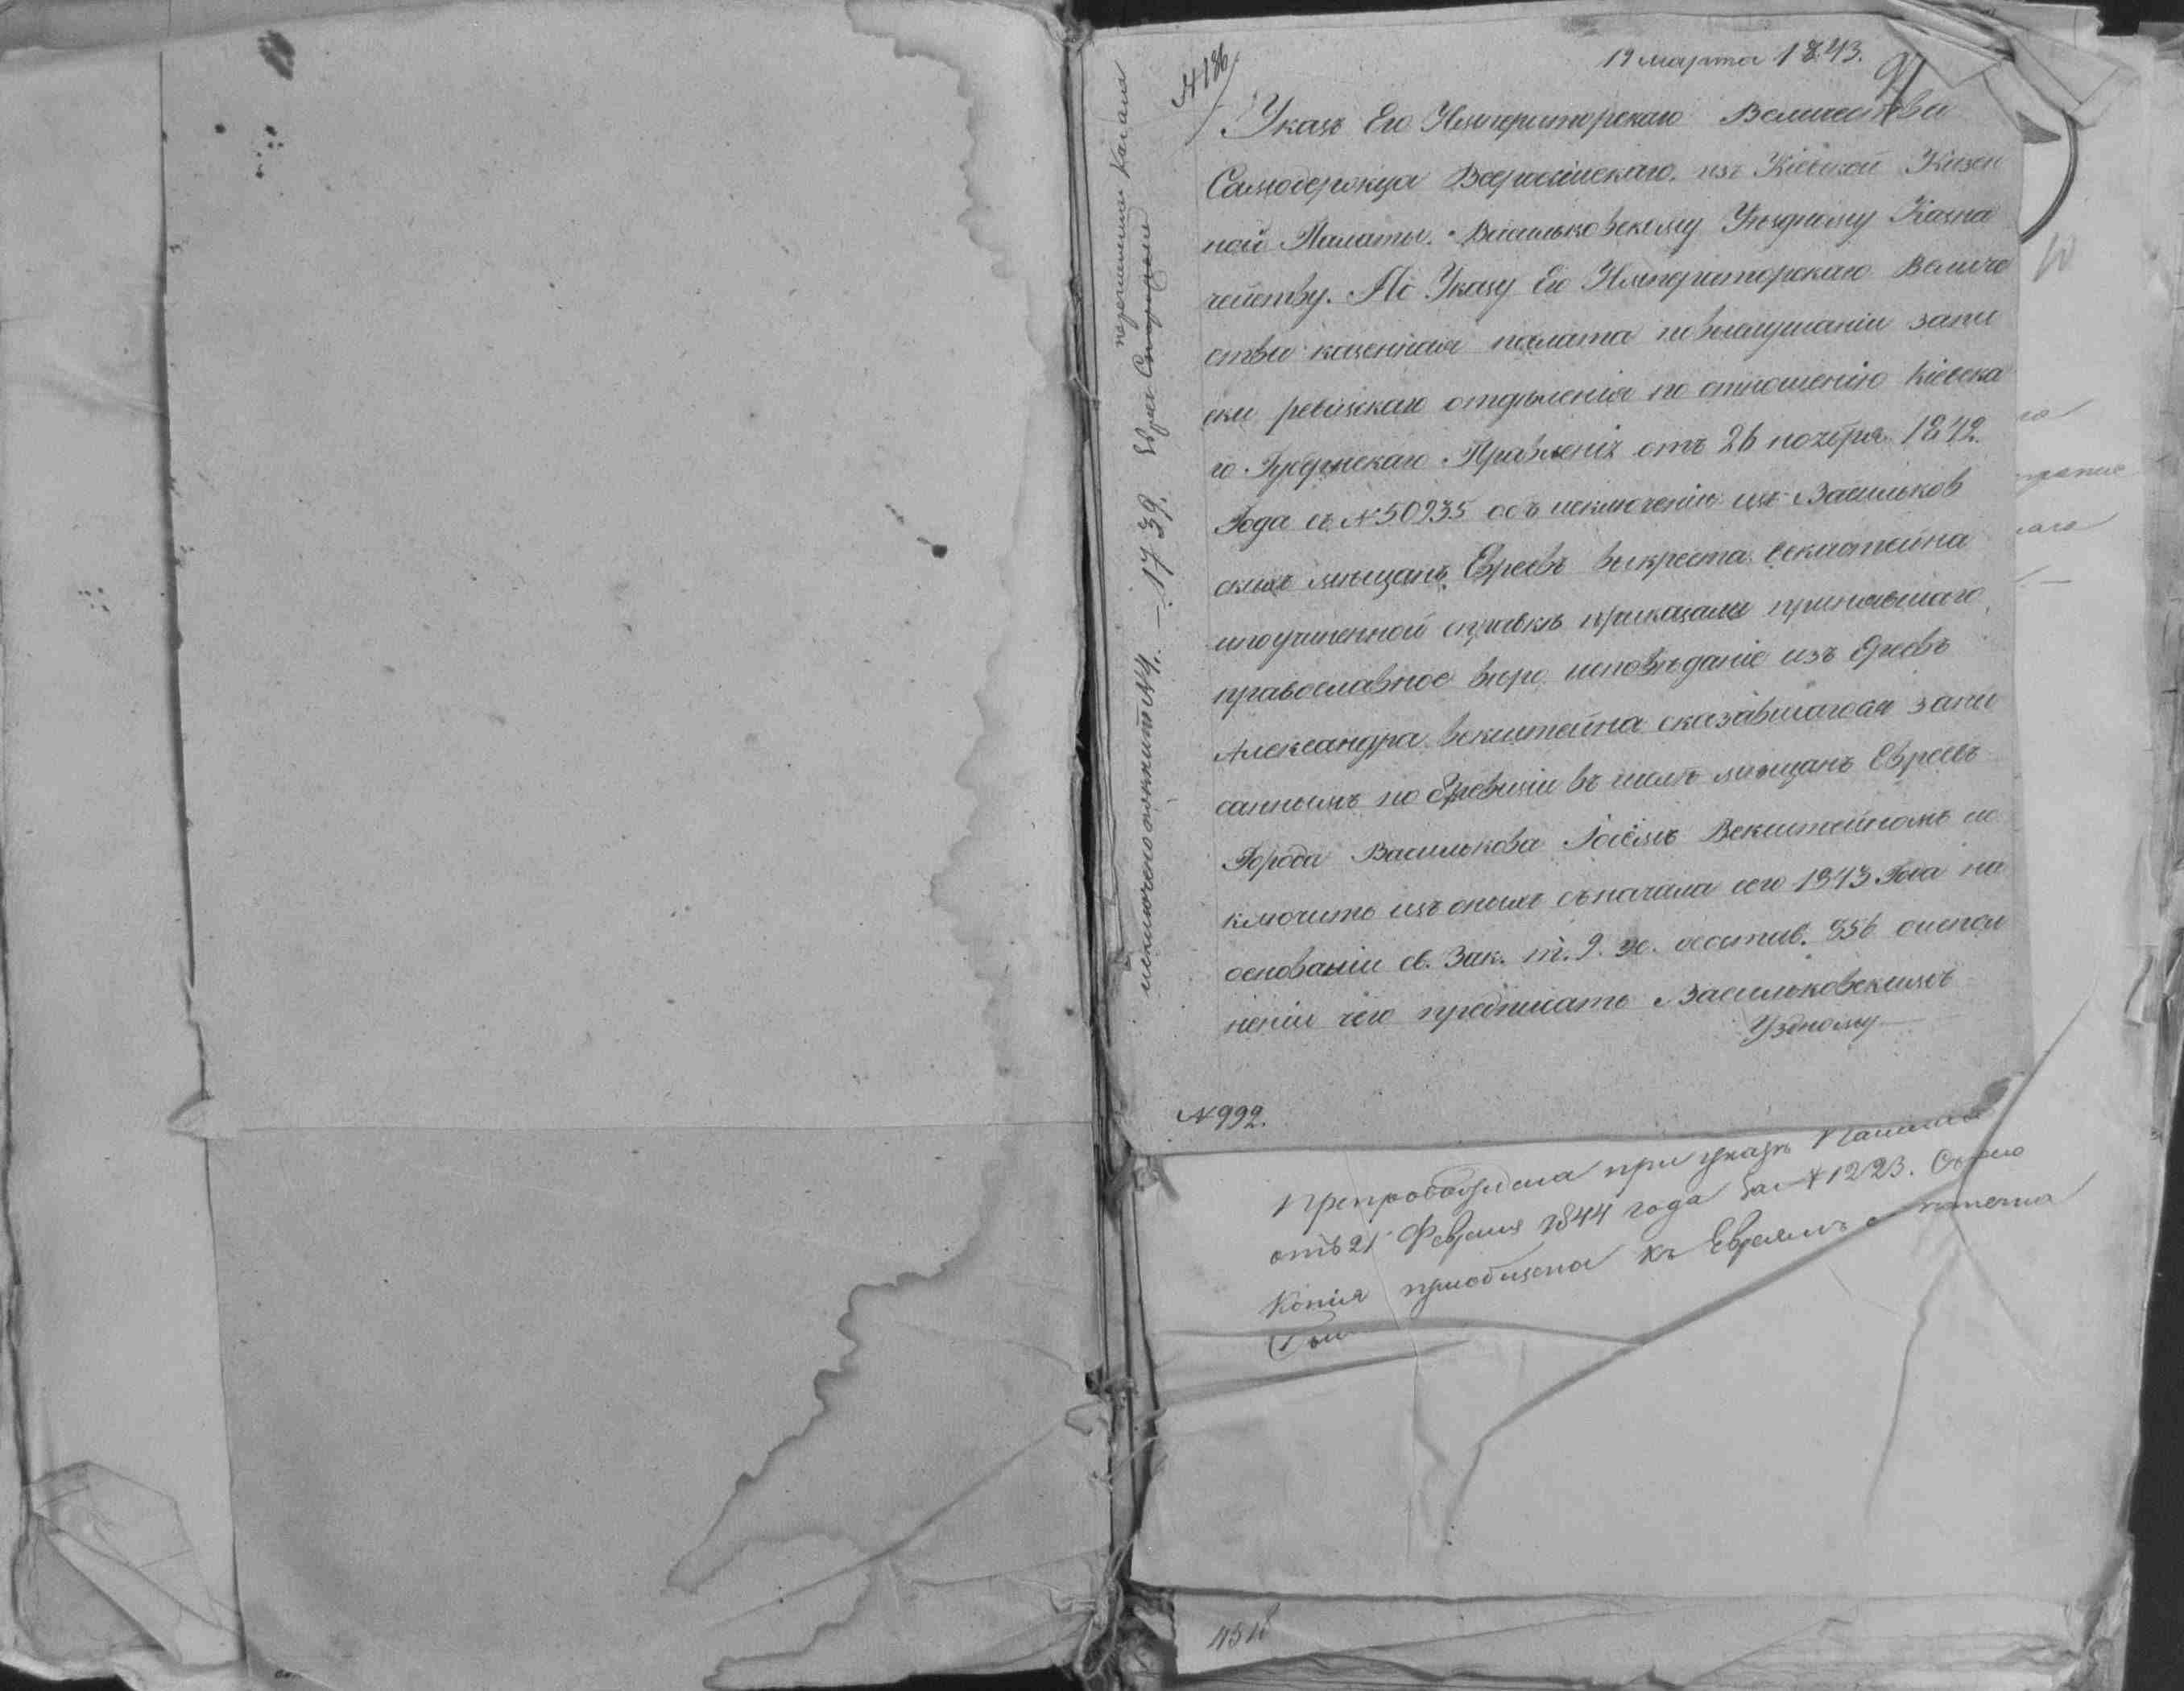 19 марта 1843.
№186
Указъ Его Императорскаго Величества
Самодержца Всероссійскаго. изъ Кіевской Казен
ной Палаты. Васильковскому Уѣздному Казна
чейству. По Указу Его Императорскаго Величе
ства казенная палата повыслушаніи запи
ски ревизскаго отдѣленія по отношенію Кіевска
го Губернскаго Правленія отъ 26 ноября 1842.
Года съ №50935 объ исключеніи изъ Васильков
скихъ мѣщанъ Евреевъ выкреста Векштейна
ипоучиненной справкѣ приказали принявшаго
православное вѣро исповѣданіе изъ Евреевъ
Александра Векштейна сказавшагося запи
саннымъ по 8 ревизіи въ числѣ мѣщанъ Евреевъ
Города Василькова Векштейномъ ис
ключить изъ оныхъ съначала сего 1843 Года на
основаніи св. Зак. т. 9. состав. 356 оиспол
неніи чего предписать Васильковскимъ
Уздному
№992.
исключено по книги №4. — 1739. Евреи
Препровождена при указѣ Палаты
отъ 21 Февраля 1844 года за №1223.
Копія приобщена къ Евреямъ
4518